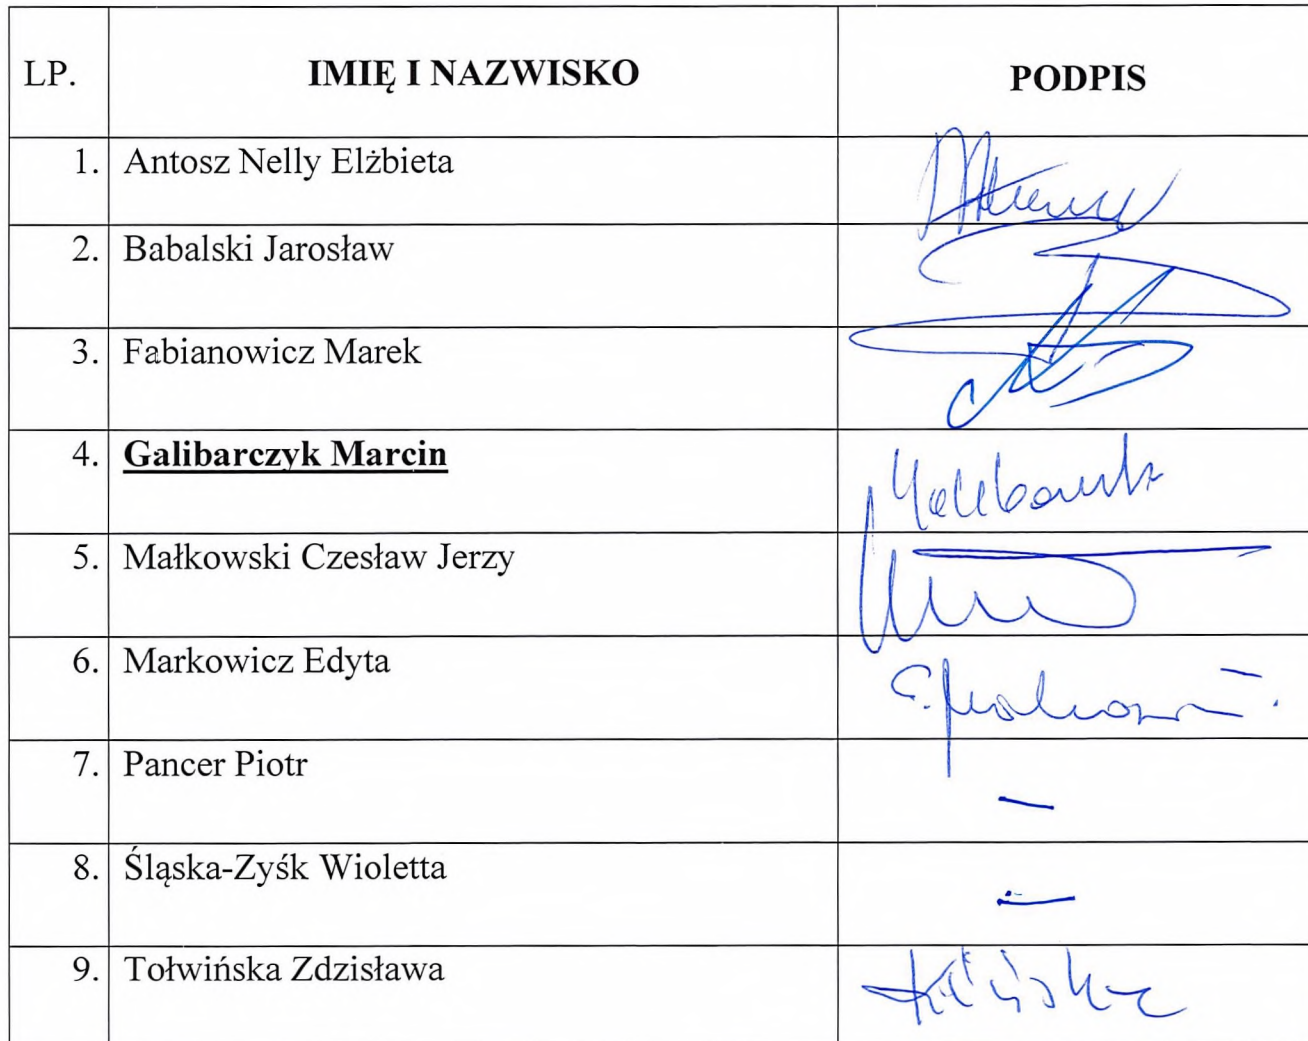 LP. IMIĘ I NAZWISKO PODPIS
1. Antosz Nelly Elżbieta
2. Babalski Jarosław
3. Fabianowicz Marek
4. Galibarczyk Marcin
5. Małkowski Czesław Jerzy
6. Markowicz Edyta
7. Pancer Piotr –
8. Śląska-Zyśk Wioletta –
9. Tołwińska Zdzisława